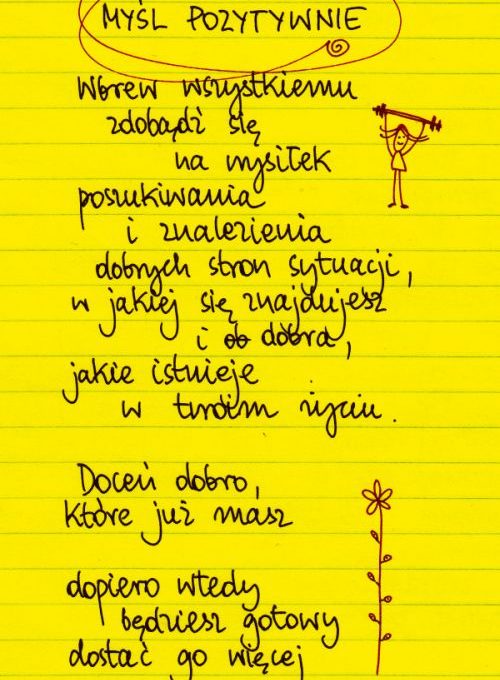 MYŚL POZYTYWNIE
Wbrew wszystkiemu
zdobądź się
na wysiłek
poszukiwania
i znalezienia
dobrych stron sytuacji,
w jakiej się znajdujesz
i dobra,
jakie istnieje
w twoim życiu.
Doceń dobro,
które już masz
dopiero wtedy
będziesz gotowy
dostać go więcej